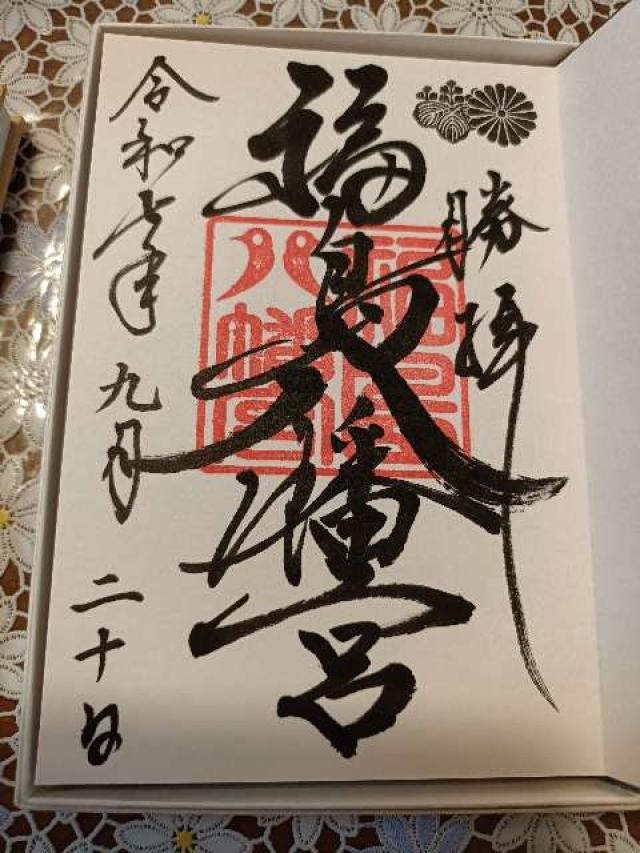 勝拝
福島八幡宮
福島
八幡宮
令和七年九月二十日